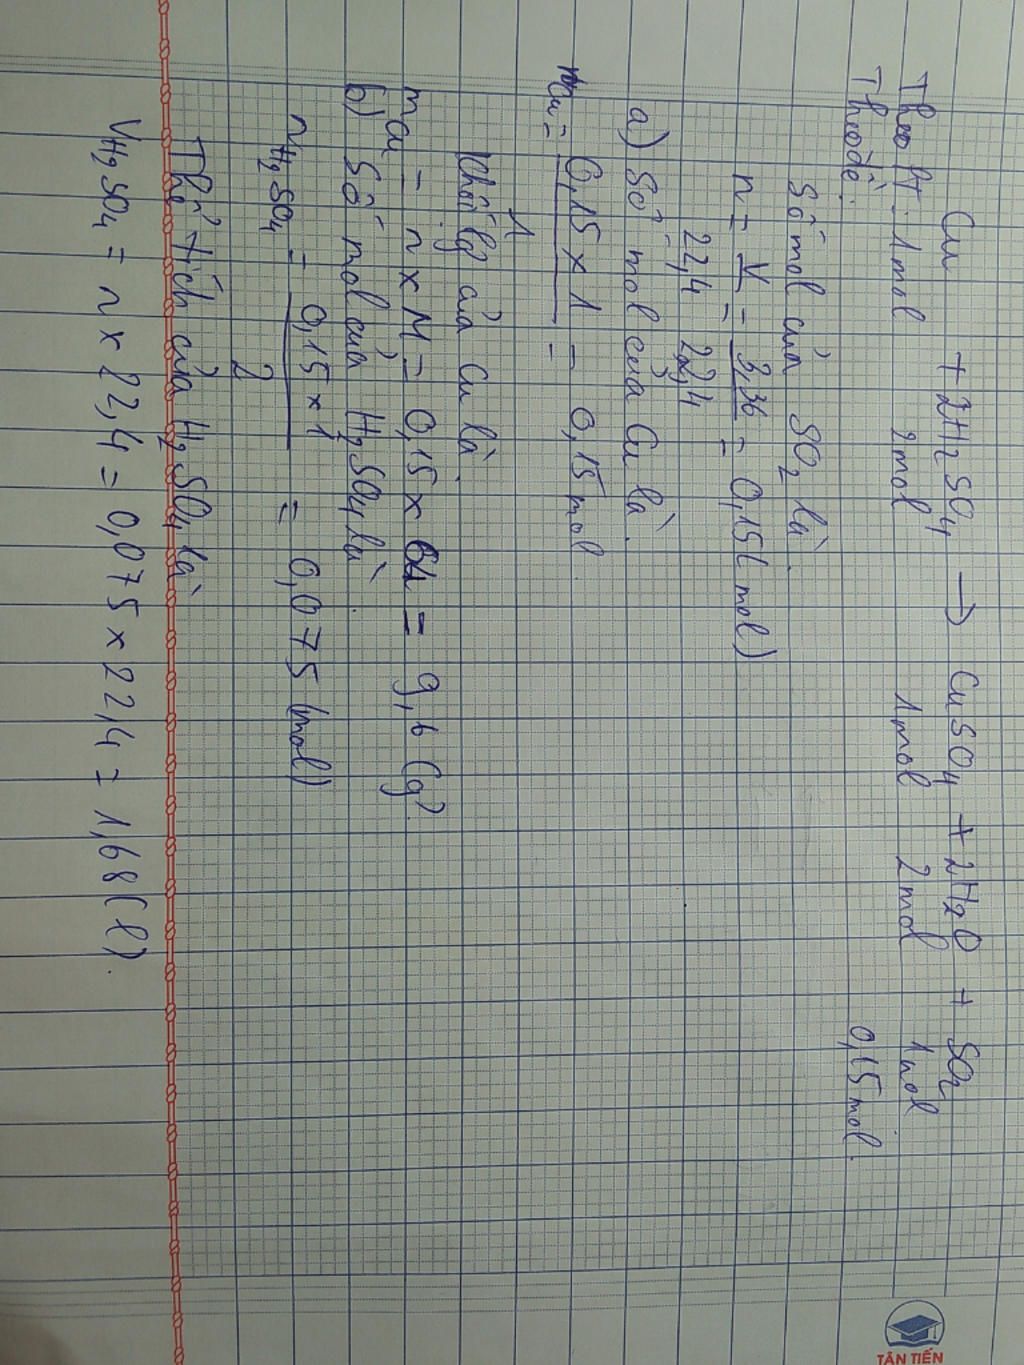 Cu + 2H2SO4 → CuSO4 + 2H2O + SO2
Theo PT: 1mol 2mol 1mol 2mol 1mol
Theo đề: 0,15mol.
Số mol của SO2 là:
n = V/22,4 = 3,36/22,4 = 0,15 (mol)
a) Số mol của Cu là:
nCu = 0,15 x 1/1 = 0,15mol
Khối lg của Cu là:
mCu = n x M = 0,15 x 64 = 9,6 (g).
b) Số mol của H2SO4 là:
nH2SO4 = 0,15 x 1/2 = 0,075 (mol)
Thể tích của H2SO4 là
VH2SO4 = n x 22,4 = 0,075 x 22,4 = 1,68 (l).
TÂN TIẾN